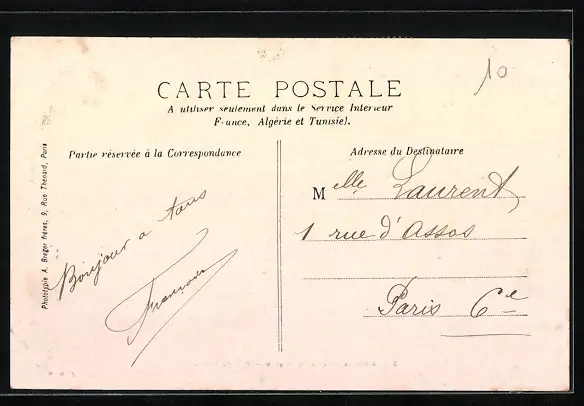 10
CARTE POSTALE
A utiliser seulement dans le Service Interieur
France, Algérie et Tunisie).
Partie réservée à la Correspondance
Adresse du Destinataire
Phototypie A. Breger frères, 9, Rue Thénard, Paris
Bonjour a tous
Melle Laurent
1 rue d'Assas
Paris 6e